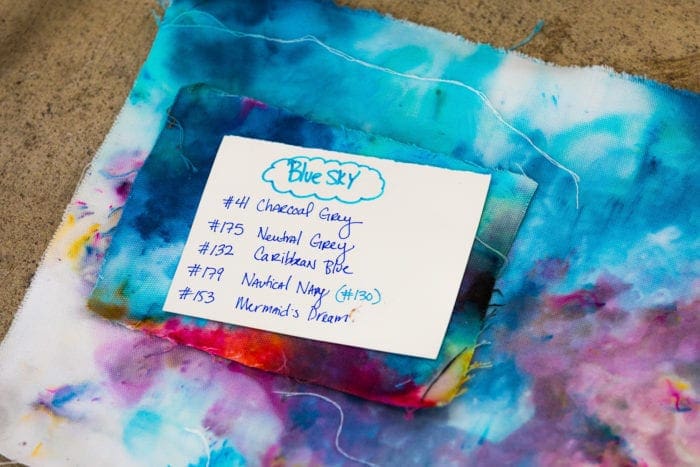 Blue Sky
#41 Charcoal Grey
#175 Neutral Grey
#132 Caribbean Blue
#179 Nautical Navy (#130)
#153 Mermaid's Dream